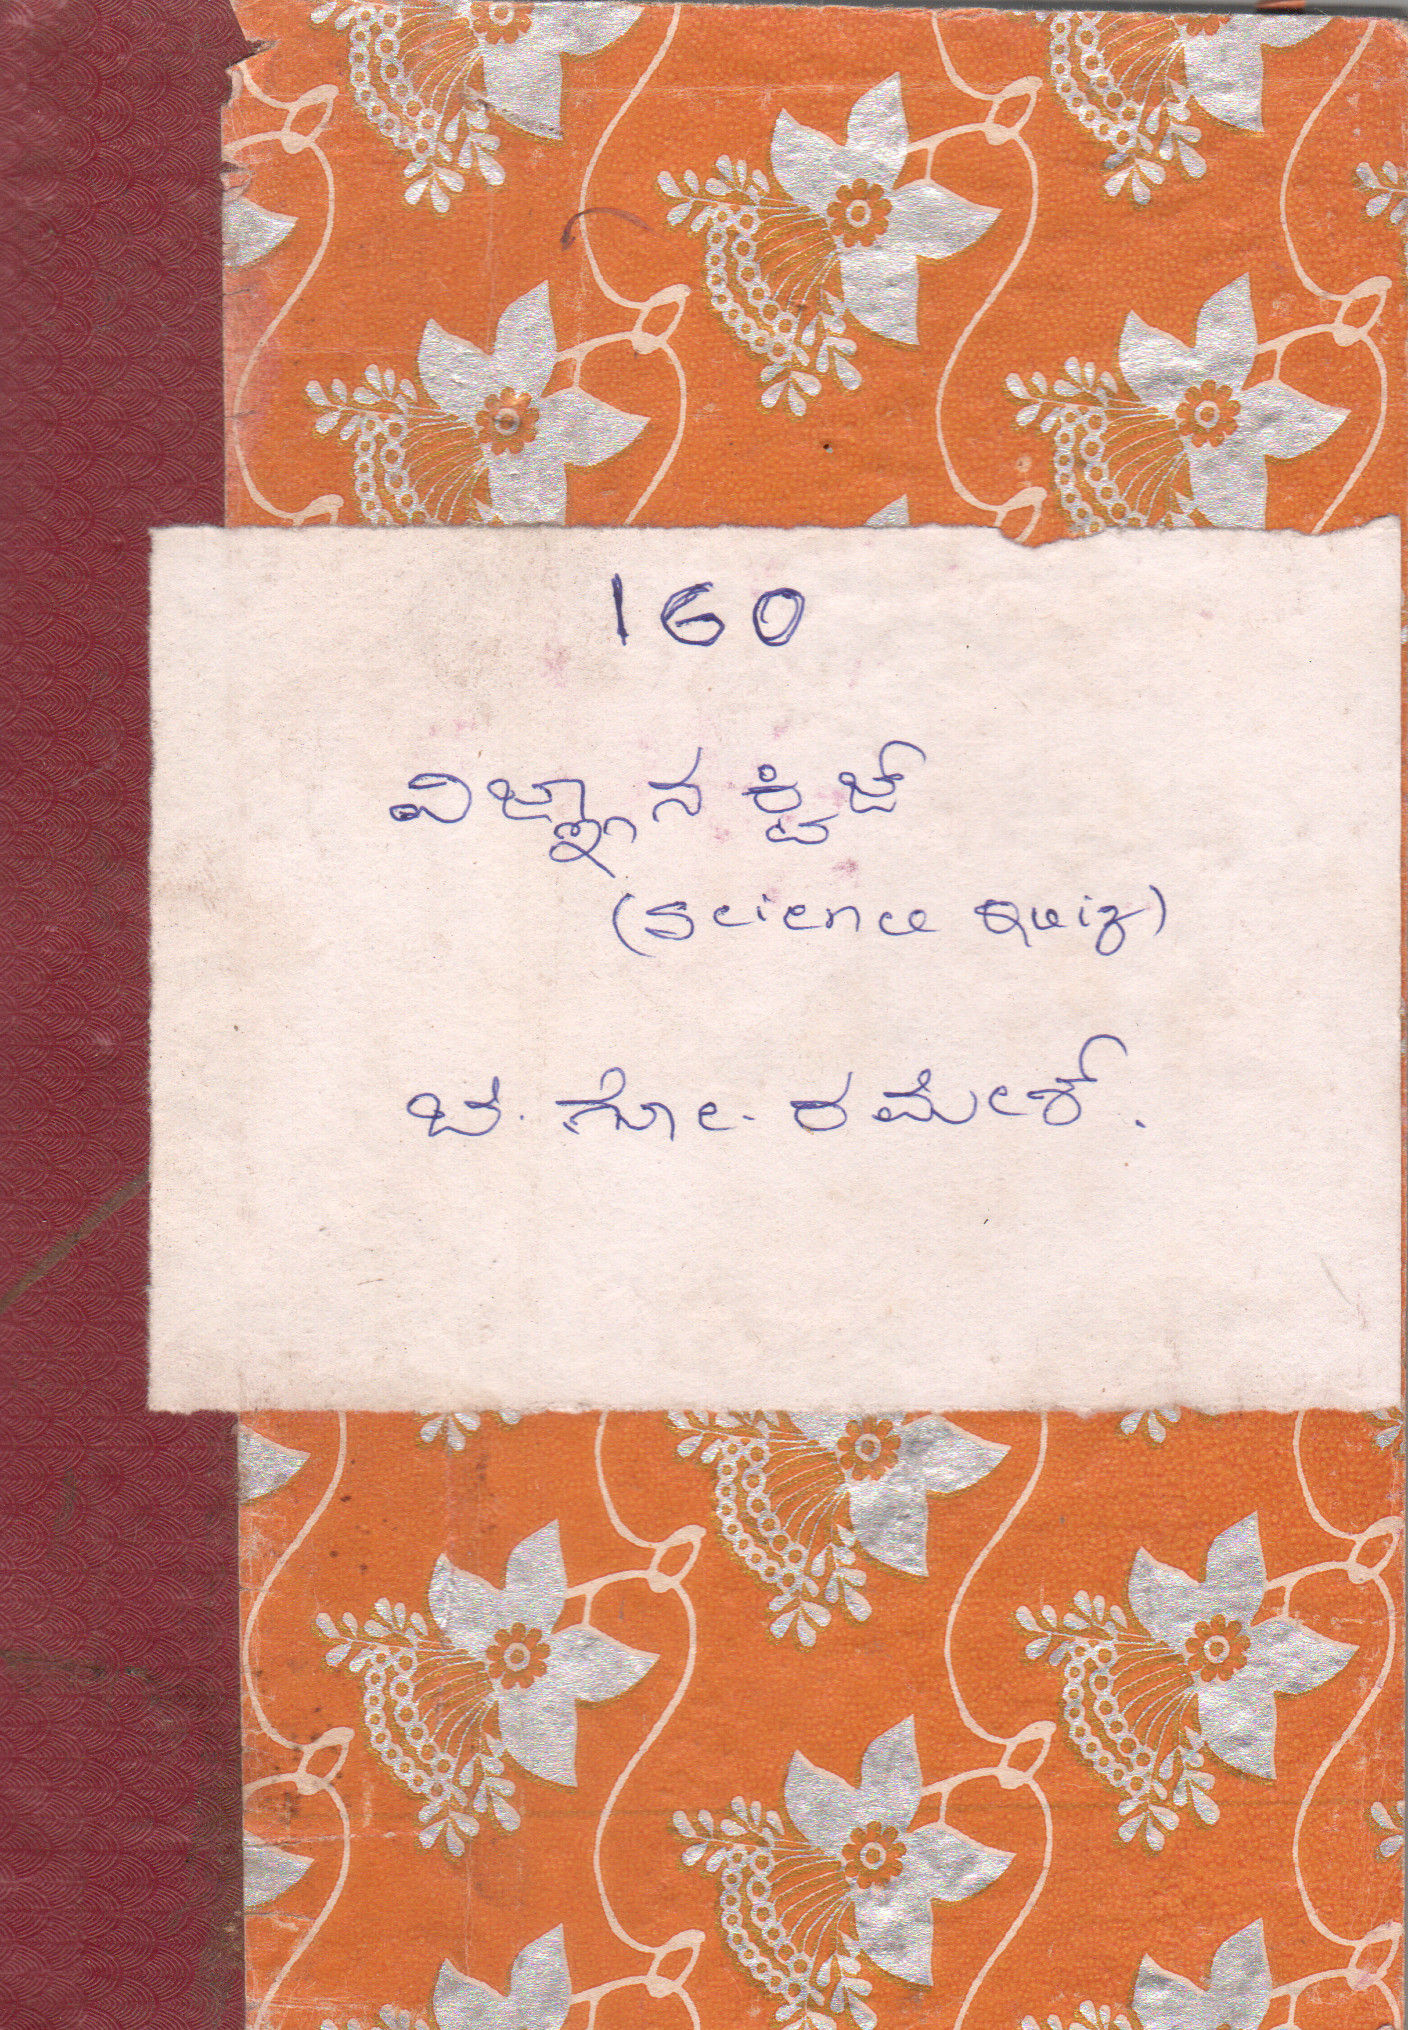 160
ವಿಜ್ಞಾನ ಕ್ವಿಜ್
(Science Quiz)
ಬೆ. ಗೋ. ರಮೇಶ್.